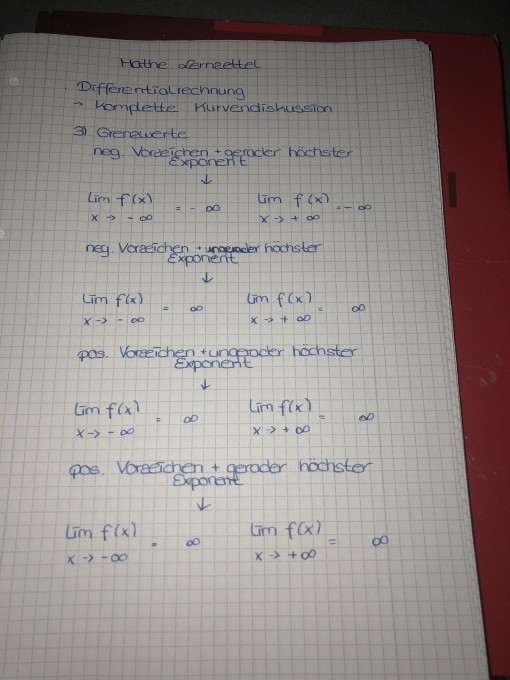 Mathe Lernzettel
Differentialrechnung
→ Komplette Kurvendiskussion
3) Grenzwerte
neg. Vorzeichen + gerader höchster
Exponent
↓
lim f(x) = - ∞ lim f(x) = - ∞
x → - ∞ x → + ∞
neg. Vorzeichen + ungerader höchster
Exponent
↓
lim f(x) = ∞ lim f(x) = ∞
x → - ∞ x → + ∞
pos. Vorzeichen + ungerader höchster
Exponent
↓
lim f(x) = ∞ lim f(x) = ∞
x → - ∞ x → + ∞
pos. Vorzeichen + gerader höchster
Exponent
↓
lim f(x) = ∞ lim f(x) = ∞
x → - ∞ x → + ∞